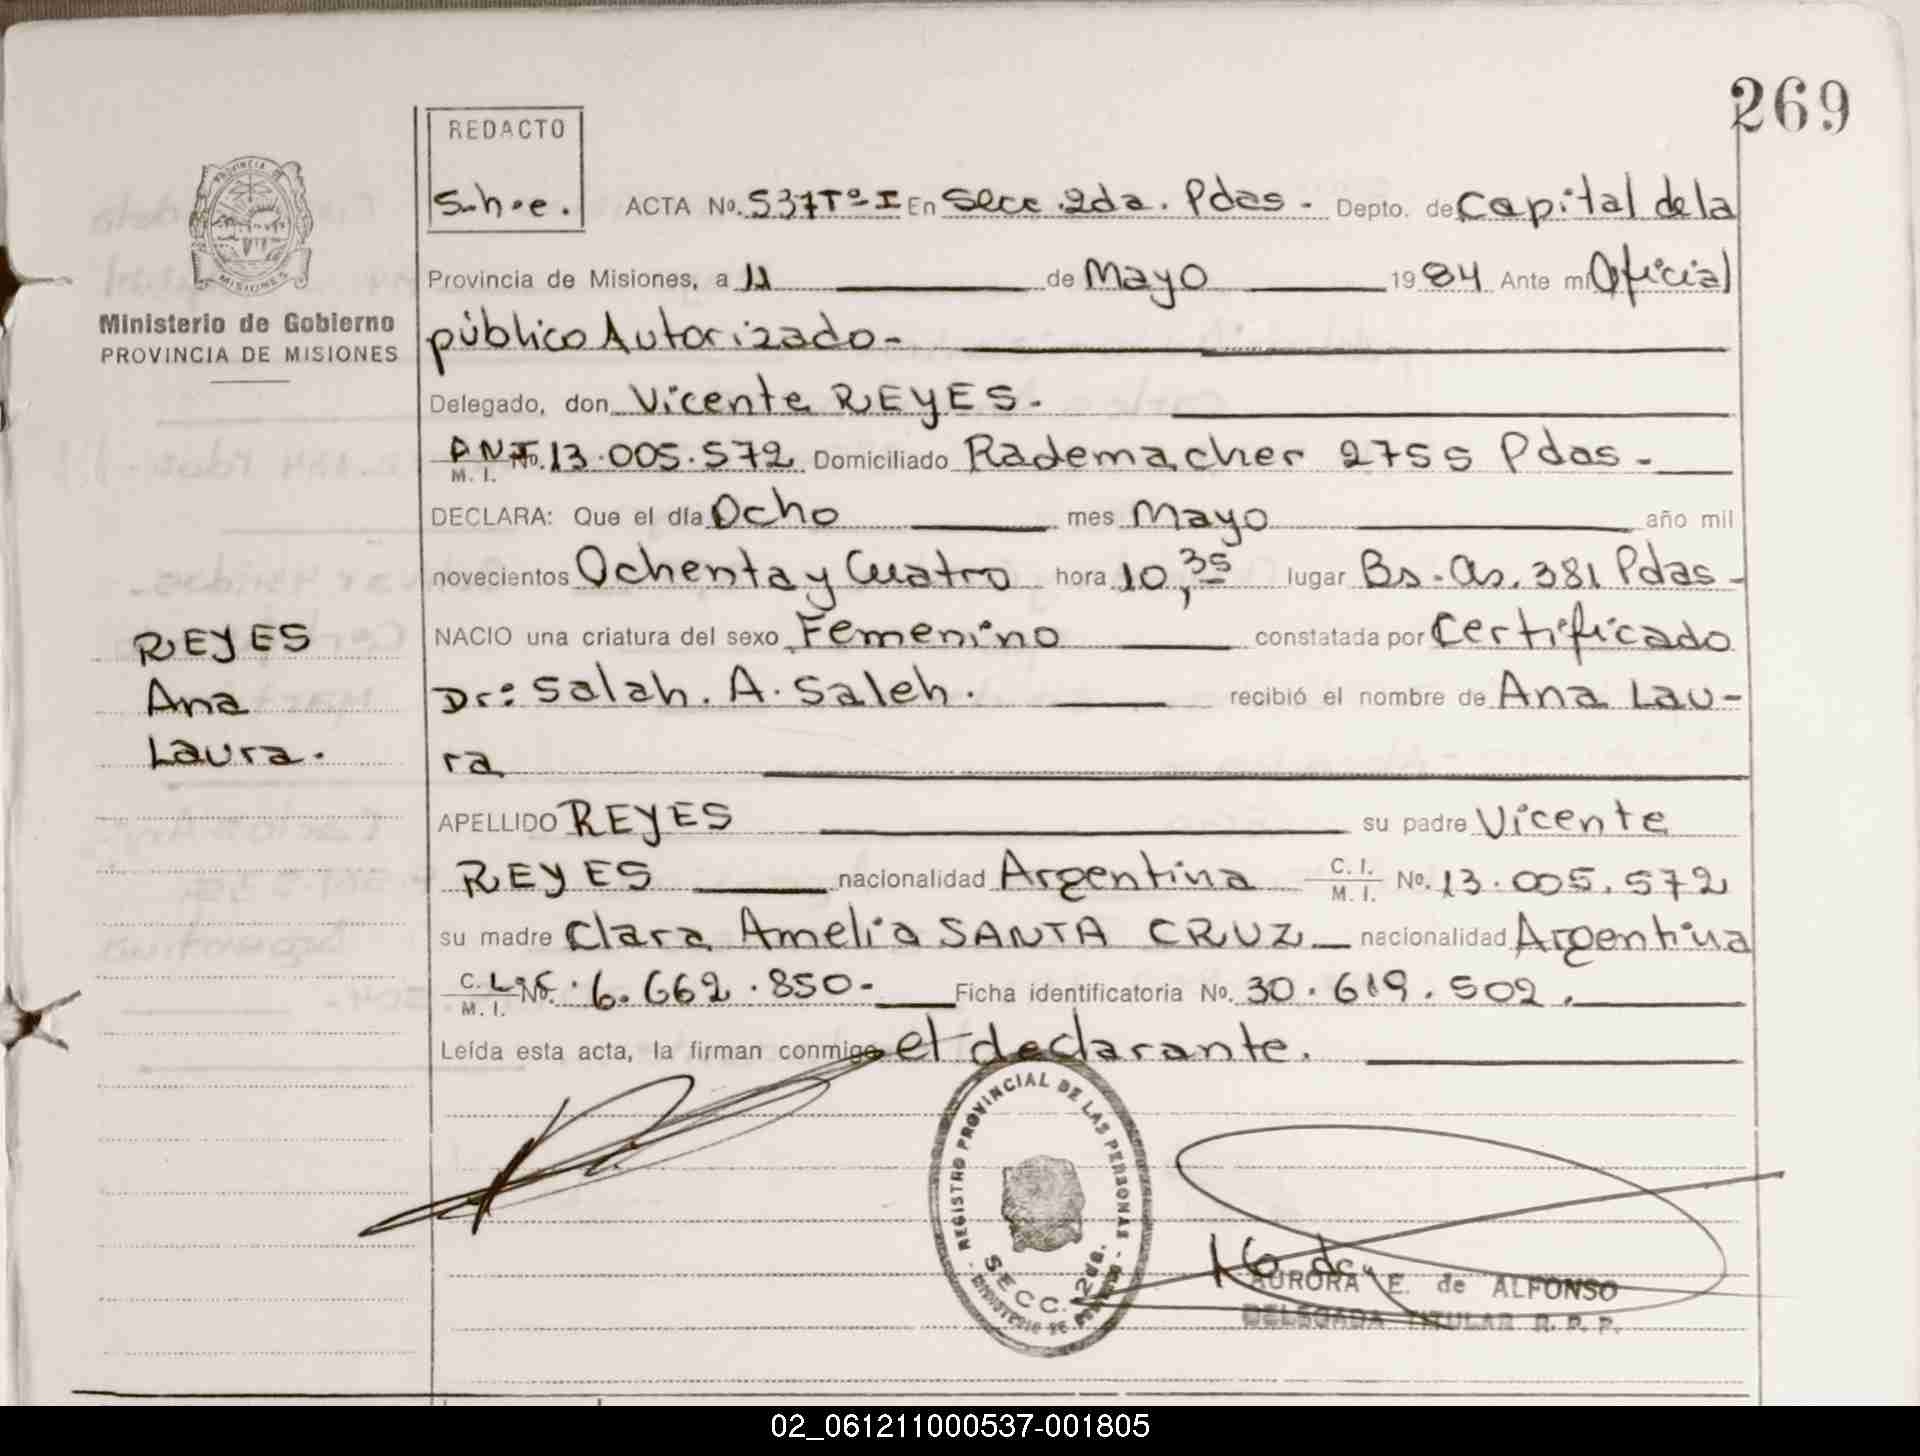 269
REDACTO
S.h.e.
PROVINCIA DE
MISIONES
Ministerio de Gobierno
PROVINCIA DE MISIONES
REYES
Ana
Laura.
ACTA No. 537 Tº I En Secc. 2da. Pdas - Depto. de Capital de la
Provincia de Misiones, a 11 de Mayo 1984 Ante mí Oficial
público Autorizado-
Delegado, don Vicente REYES.
M. I. No. 13.005.572 Domiciliado Rademacher 2755 Pdas-
DECLARA: Que el día Ocho mes Mayo año mil
novecientos Ochenta y Cuatro hora 10,35 lugar Bs-as. 381 Pdas-
NACIO una criatura del sexo Femenino constatada por Certificado
Dr: Salah. A. Saleh. recibió el nombre de Ana Lau-
ra
APELLIDO REYES su padre Vicente
REYES nacionalidad Argentina C. I. M. I. No. 13.005.572
su madre Clara Amelia SANTA CRUZ nacionalidad Argentina
C. M. I. No. 6.662.850- Ficha identificatoria No. 30.619.502.
Leída esta acta, la firman conmigo el declarante.
REGISTRO PROVINCIAL DE LAS PERSONAS
SECC. 2da.
AURORA E. de ALFONSO
DELEGADA TITULAR R. P. P.
02_061211000537-001805